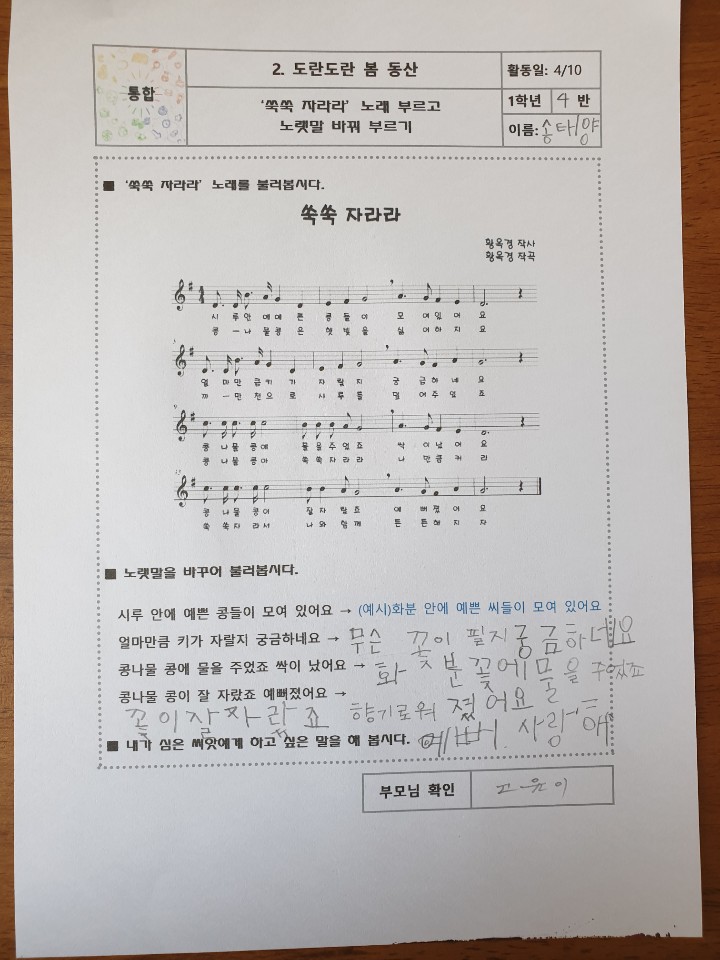 통합
2. 도란도란 봄 동산
활동일: 4/10
'쑥쑥 자라라' 노래 부르고
노랫말 바꿔 부르기
1학년 4 반
이름: 송태양
■ '쑥쑥 자라라' 노래를 불러봅시다.
쑥쑥 자라라
황옥경 작사
황옥경 작곡
시 루 안 에 예 쁜 콩 들 이 모 여 있 어 요
콩 ー 나 물 콩 은 햇 빛 을 싫 어 하 지 요
5
얼 마 만 큼 키 가 자 랄 지 궁 금 하 네 요
까 ー 만 천 으 로 시 루 를 덮 어 주 었 죠
9
콩 나 물 콩 에 물 을 주 었 죠 싹 이 났 어 요
콩 나 물 콩 아 쑥 쑥 자 라 라 나 만 큼 커 라
13
콩 나 물 콩 이 잘 자 랐 죠 예 뻐 졌 어 요
쑥 쑥 자 라 서 나 와 함 께 튼 튼 해 지 자
■ 노랫말을 바꾸어 불러봅시다.
시루 안에 예쁜 콩들이 모여 있어요 → (예시)화분 안에 예쁜 씨들이 모여 있어요
얼마만큼 키가 자랄지 궁금하네요 → 무슨 꽃이 필지 궁금하네요
콩나물 콩에 물을 주었죠 싹이 났어요 → 화분 꽃에 물을 주었죠
콩나물 콩이 잘 자랐죠 예뻐졌어요 →
꽃이 잘 자랐죠 향기로워 졌어요
■ 내가 심은 씨앗에게 하고 싶은 말을 해 봅시다. 예뻐. 사랑해
부모님 확인 고윤이